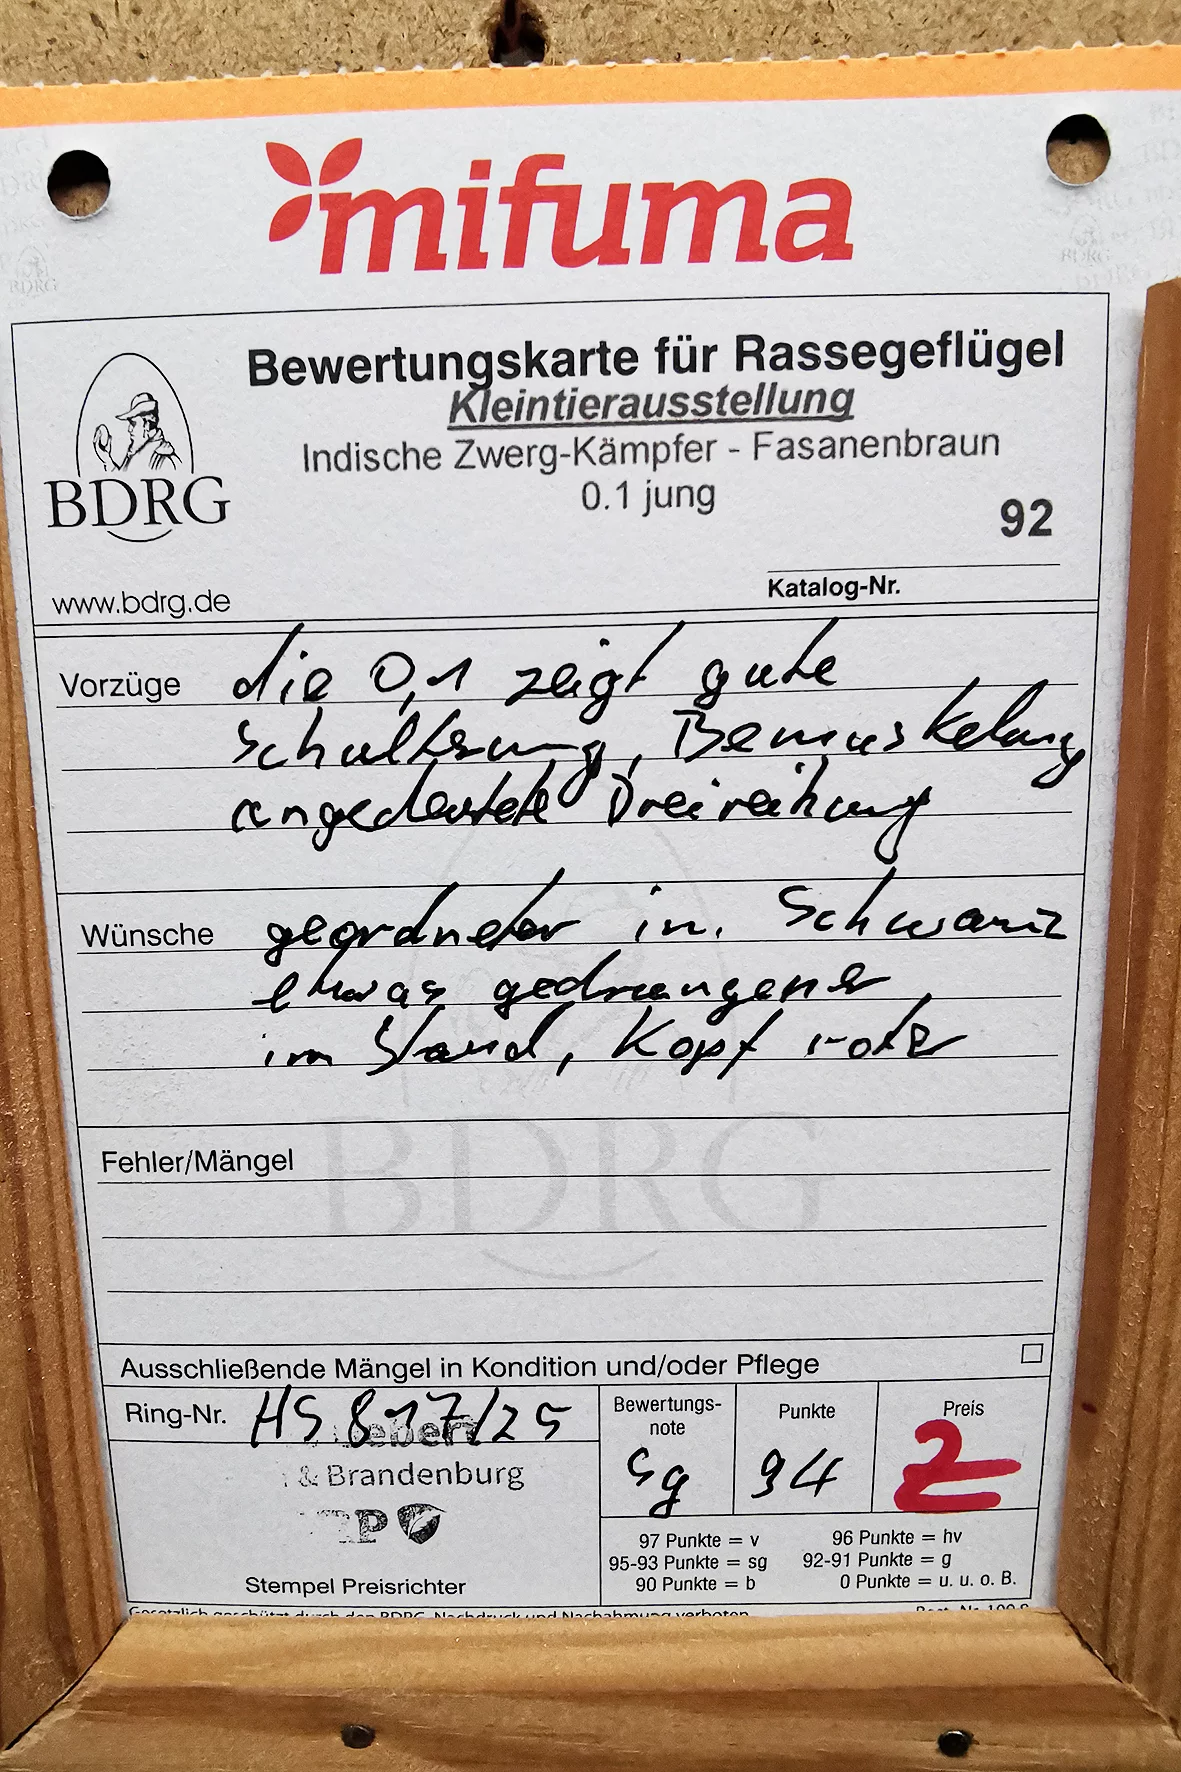 mifuma
BDRG
www.bdrg.de
Bewertungskarte für Rassegeflügel
Kleintierausstellung
Indische Zwerg-Kämpfer - Fasanenbraun
0.1 jung
92
Katalog-Nr.
Vorzüge die 0,1 zeigt gute
Schulterung, Bemuskelung
angedeutete Dreireihung
Wünsche geordneter im Schwanz
etwas gedrungener
im Stand, Kopf roter
BDRG
Fehler/Mängel
Ausschließende Mängel in Kondition und/oder Pflege
Ring-Nr. HS 817/25
& Brandenburg
Stempel Preisrichter
Bewertungs-
note
sg
Punkte
94
Preis
2
97 Punkte = v 96 Punkte = hv
95-93 Punkte = sg 92-91 Punkte = g
90 Punkte = b 0 Punkte = u. u. o. B.
Gesetzlich geschützt durch den BDRG, Nachdruck und Nachahmung verboten